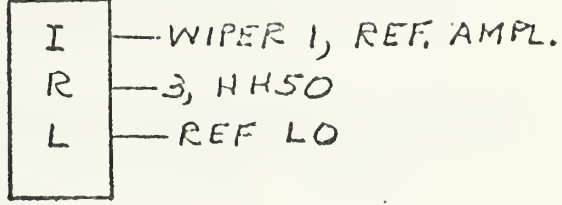 I — WIPER 1, REF. AMPL.
R — 3, HH50
L — REF LO